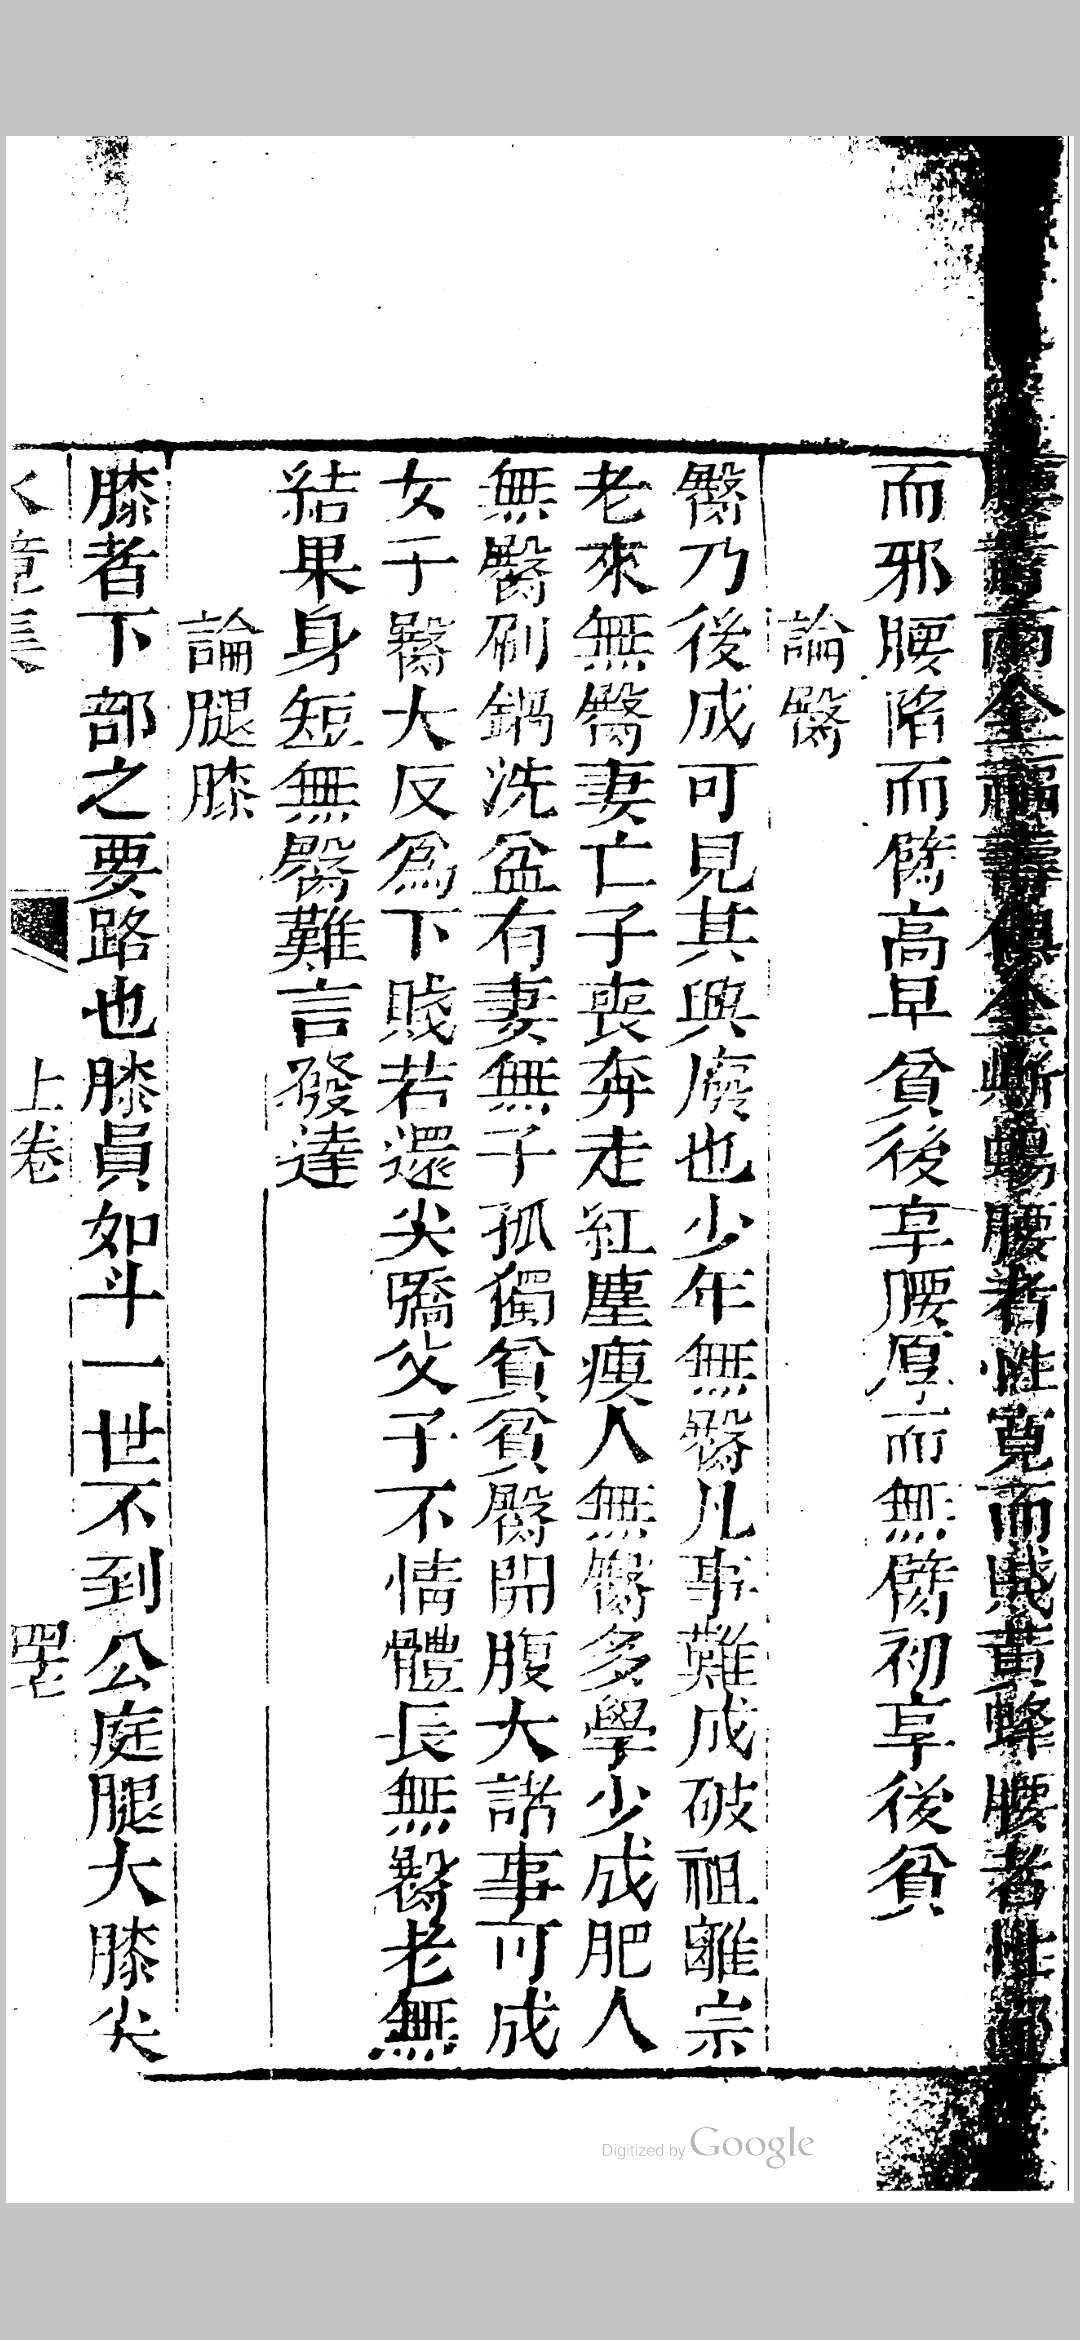 腰者性寬而賤黃蜂腰者性
而邪腰陷而臋高早貧後享腰厚而無臋初享後貧
論臋
臋乃後成可見其興廢也少年無臋凡事難成破祖離宗
老來無臋妻亡子喪奔走紅塵瘦人無臋多學少成肥人
無臋刷鍋洗盆有妻無子孤獨貧貧臋開腹大諸事可成
女子臋大反為下賤若還尖臋父子不情體長無臋老無
結果身短無臋難言發達
論腿膝
膝者下部之要路也膝員如斗一世不到公庭腿大膝尖
上卷
Digitized by Google